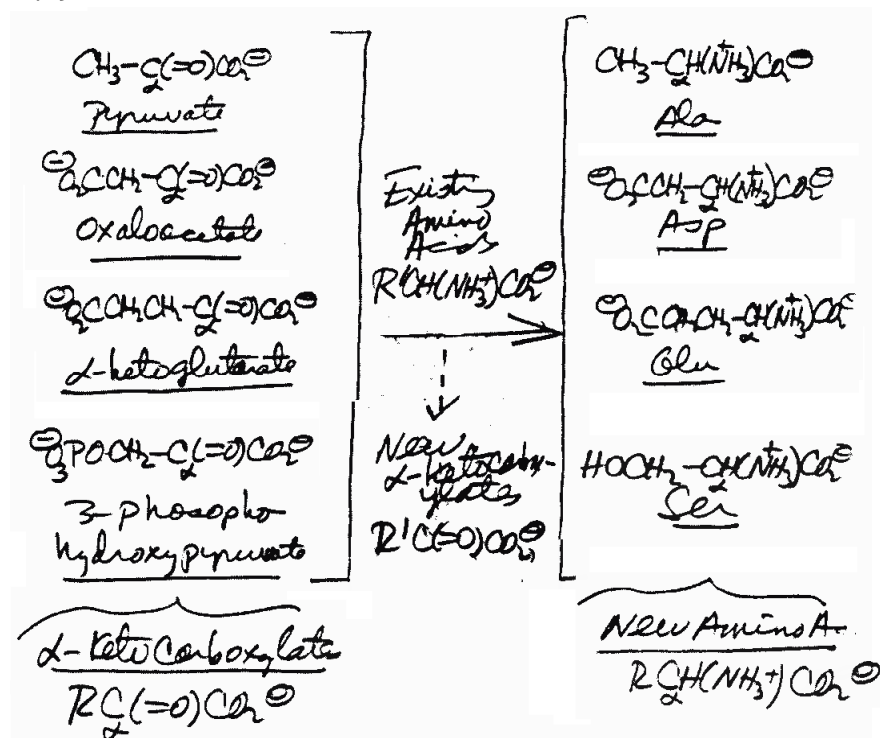 CH3-C(=O)CO2⊖
α
Pyruvate
⊖O2CCH2-C(=O)CO2⊖
α
Oxaloacetate
⊖O2CCH2CH2-C(=O)CO2⊖
α
α-ketoglutarate
⊖O3POCH2-C(=O)CO2⊖
α
3-phosopho
hydroxypyruvate
α-Keto Carboxylates
RC(=O)CO2⊖
α
Existing
Amino
Acids
R'CH(NH3+)CO2⊖
New
α-ketocarbox-
ylates
R'C(=O)CO2⊖
CH3-CH(NH3+)CO2⊖
α
Ala
⊖O2CCH2-CH(NH3+)CO2⊖
α
Asp
⊖O2CCH2CH2-CH(NH3+)CO2⊖
α
Glu
HOCH2-CH(NH3+)CO2⊖
α
Ser
New Amino A.
RCH(NH3+)CO2⊖
α